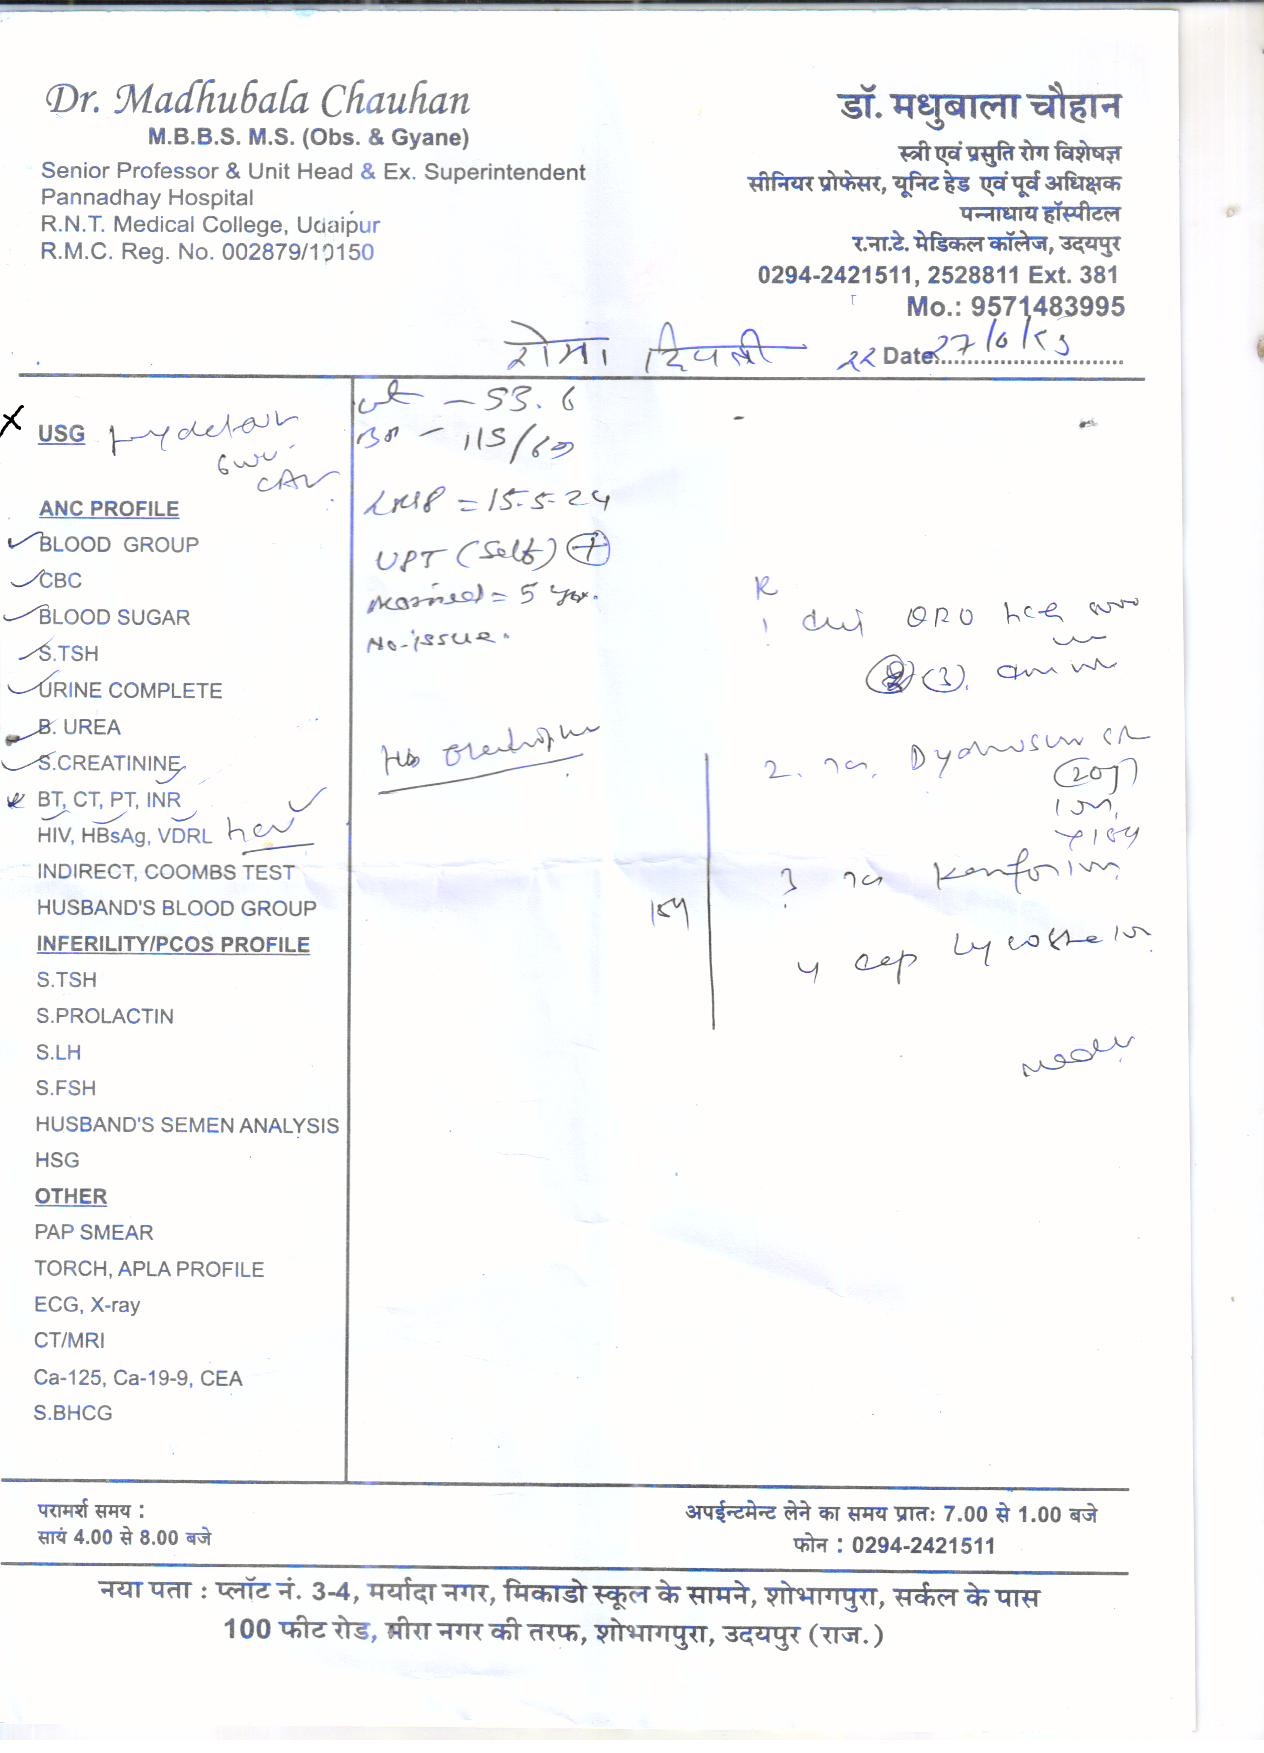 Dr. Madhubala Chauhan
M.B.B.S. M.S. (Obs. & Gyane)
Senior Professor & Unit Head & Ex. Superintendent
Pannadhay Hospital
R.N.T. Medical College, Udaipur
R.M.C. Reg. No. 002879/10150
डॉ. मधुबाला चौहान
स्त्री एवं प्रसुति रोग विशेषज्ञ
सीनियर प्रोफेसर, यूनिट हेड एवं पूर्व अधिक्षक
पन्नाधाय हॉस्पीटल
र.ना.टे. मेडिकल कॉलेज, उदयपुर
0294-2421511, 2528811 Ext. 381
Mo.: 9571483995
Date
USG
ANC PROFILE
BLOOD GROUP
CBC
BLOOD SUGAR
S.TSH
URINE COMPLETE
B. UREA
S.CREATININE
BT, CT, PT, INR
HIV, HBsAg, VDRL hcv
INDIRECT, COOMBS TEST
HUSBAND'S BLOOD GROUP
INFERILITY/PCOS PROFILE
S.TSH
S.PROLACTIN
S.LH
S.FSH
HUSBAND'S SEMEN ANALYSIS
HSG
OTHER
PAP SMEAR
TORCH, APLA PROFILE
ECG, X-ray
CT/MRI
Ca-125, Ca-19-9, CEA
S.BHCG
wt - 53.6
BP - 115/60
LMP = 15-5-24
UPT (Self) +
Married = 5 yr.
No-issue.
परामर्श समय :
सायं 4.00 से 8.00 बजे
अपईन्टमेन्ट लेने का समय प्रातः 7.00 से 1.00 बजे
फोन : 0294-2421511
नया पता : प्लॉट नं. 3-4, मर्यादा नगर, मिकाडो स्कूल के सामने, शोभागपुरा, सर्कल के पास
100 फीट रोड, मीरा नगर की तरफ, शोभागपुरा, उदयपुर (राज.)